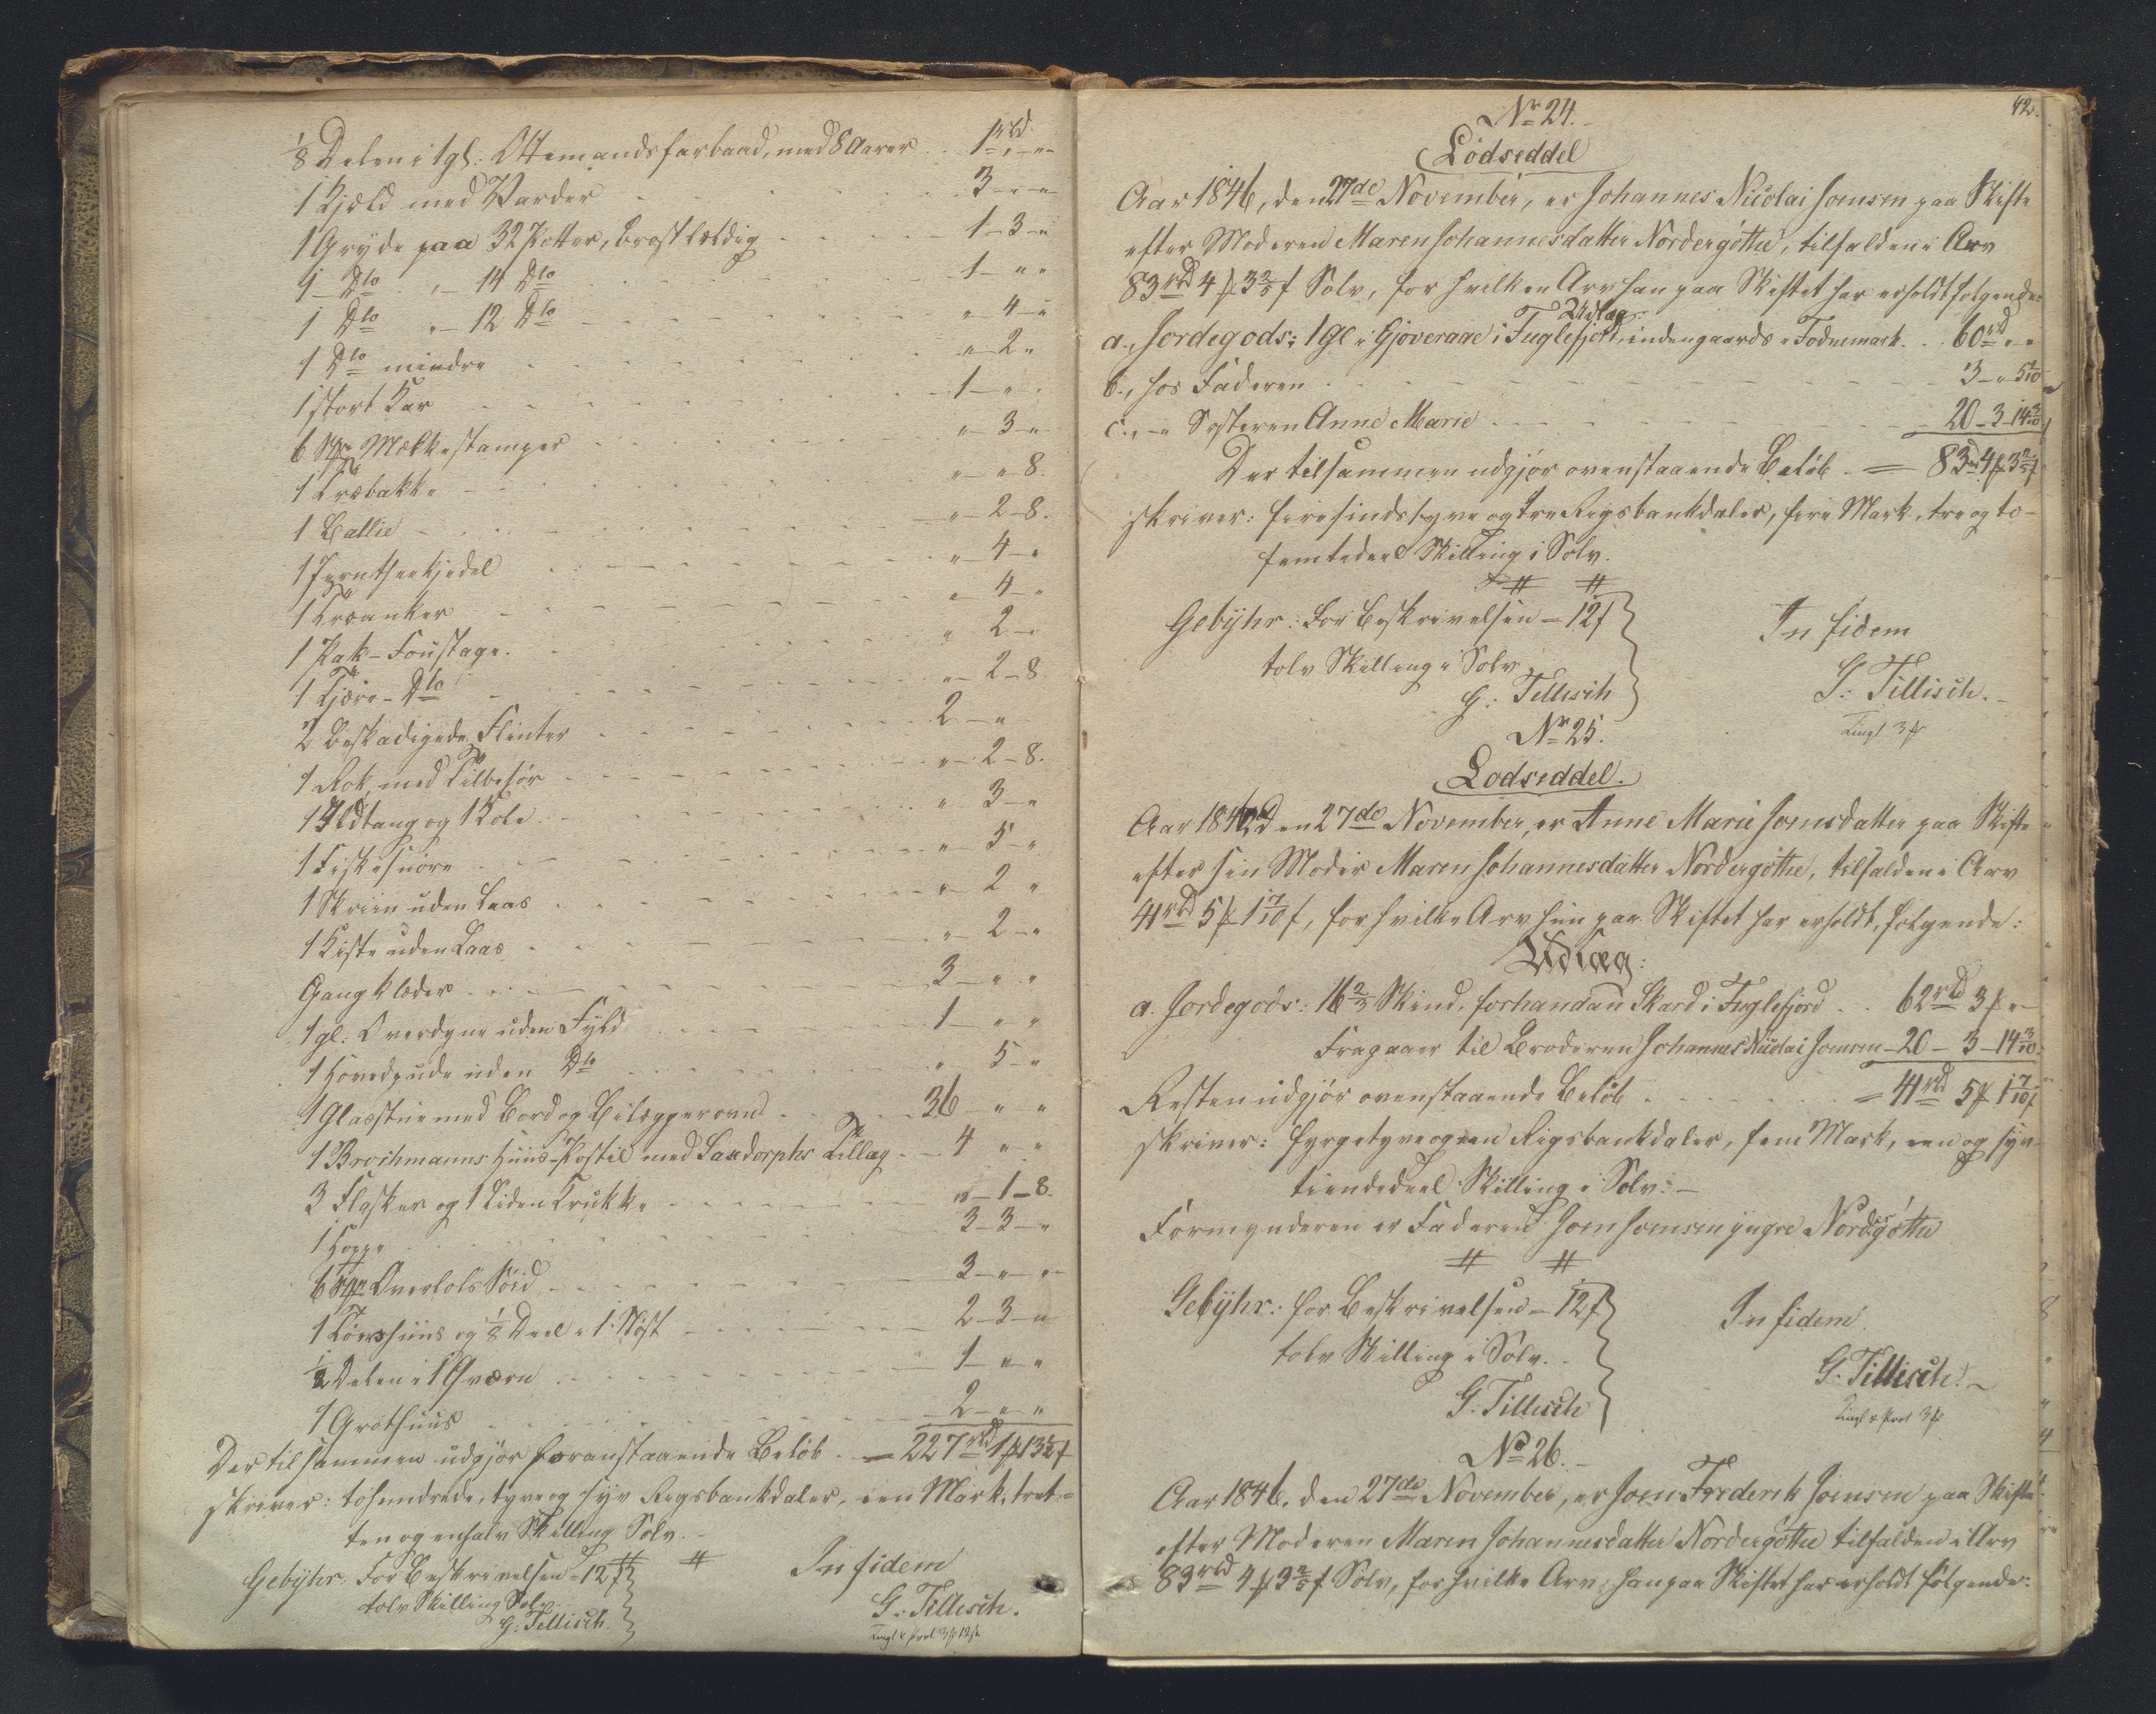 1/8 Delen i 1 gl: Ottemandsfarbaad, med 8 Aarer . . 1rbd " "
1 Kjæld med Varder . . . 3 - " - "
1 Gryde paa 32 Potter, brøstfældig . . . 1 - 3 - "
1 - Dto " - 14 Dto . . . 1 - " "
1 Dto " - 12 Dto . . . " - 4 - "
1 Dto mindre . . . " - 2 "
1 stort Kar . . . 1 - " -
6 Stkr Mælkestamper . . . " - 3 - "
1 Træbakke . . . " - " 8.
1 Ballie . . . " - 2 - 8.
1 Jerntheekjedel . . . " - 4 - "
1 Træanker . . . " - 4 - "
1 Pak-Foustage . . . " 2 - "
1 Tjære-Dto . . . " - 2 - 8
2 beskadigede Flinter . . . 2 - "
1 Rok, med Tilbehør . . . " - 2 - 8.
1 Ildtang og 1 Kole . . . " 3 - "
1 Fiskesnøre . . . " - 5 - "
1 Skriin uden Laas . . . " - 2 "
1 Kiste uden Laas . . . " - 2 - "
Gangklæder . . . 3 - " "
1 gl: Overdyne uden Fyld . . . 1 - " "
1 Hovedpude uden Dto . . . " 5 - "
1 Glasstue med Bord og Bilæggerovn . . . 36 - " - "
1 Brochmanns Huus-Postil med Saxdorphs Tillæg . . 4 " - "
3 Flasker og 1 liden Krukke . . . " - 1 - 8.
1 Hoppe . . . 3 - 3 - "
6 Stkr Overlols Søid . . . 3 - " - "
1 Törvhuus og 1/8 Deel i 1 Nøst . . . 2 - 3 - "
1/2 Delen i 1 Qværn . . . 1 - " - "
1 Grothuus . . . 2 - " - "
Der tilsammen udgjør foranstaaende Beløb . = 227rbd 1 ß 13½ f
skriver: tohundrede, tyve og syv Rigsbankdaler, een Mark, tret-
ten og enhalv Skilling Sølv. -
Gebyhr: For Beskrivelsen = 12 f # # In fidem
tolv Skilling Sølv. G. Tillisch.
G: Tillisch.
42.
No 24. -
Lodseddel
Aar 1846, den 27de November, er Johannes Nicolai Joensen paa Skifte
efter Moderen Maren Johannesdatter Nordergøthe, tilfalden i Arv
83rbd 4 ß 3 2/5 f Sølv, for hvilken Arv han paa Skiftet har erholdt følgende
Udlæg:
a., Jordegods: 1 Gl i Gjøveraae i Fuglefjord, indengaards i Todnesmark . . 60rbd " "
b., hos Faderen . . . 3 - " 5 1/10
c., - " Søsteren Anne Marie . . . 20 - 3 - 14 3/10
Der tilsammen udgjør ovenstaaende Beløb . = 83rbd 4 ß 3 2/5 f
skriver: firesindstyve og tre Rigsbankdaler, fire Mark, tre og to-
femtedeel Skilling i Sølv.
# #
Gebyhr: For Beskrivelsen = 12 f In fidem
tolv Skilling i Sølv G: Tillisch. -
G: Tillisch
No 25.
Lodseddel.
Aar 1846, den 27de November, er Anne Marie Joensdatter paa Skifte
efter sin Moder Maren Johannesdatter Nordergøthe, tilfalden i Arv
41rbd 5 ß 1 7/10 f, for hvilke Arv hun paa Skiftet har erholdt, følgende:
Udlæg:
a. Jordegods: 16 2/3 Skind, forhandan Skard i Fuglefjord . . 62rbd 3 ß " -
Fragaaer til Broderen Johannes Nicolai Joensen - 20 - 3 - 14 3/10
Resten udgjør ovenstaaende Beløb . . . = 41rbd 5 ß 1 7/10 f
skriver: fyrgetyve og een Rigsbankdaler, fem Mark, een og syv-
tiendedeel Skilling i Sølv: -
Formynderen er Faderen Joen Joensen yngre Nordergøthe
# #
Gebyhr: for Beskrivelsen = 12 f In fidem.
tolv Skilling i Sølv. - G. Tillisch. -
G. Tillisch
No 26. -
Aar 1846, den 27de November, er Joen Frederik Joensen paa Skifte
efter Moderen Maren Johannesdatter Nordergøthe tilfalden i Arv
83rbd 4 ß 3 2/5 f Sølv, for hvilke Arv, han paa Skiftet har erholdt følgende: